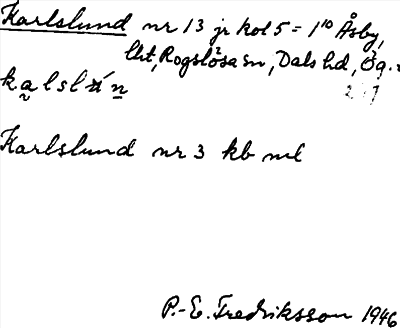 Karlslund nr 13 jr kol 5 = 1¹⁰ Åsby,
Rogslösa sn, Dals hd, Ög.
Karlslund nr 3 kb ml
P.-E. Fredriksson 1946